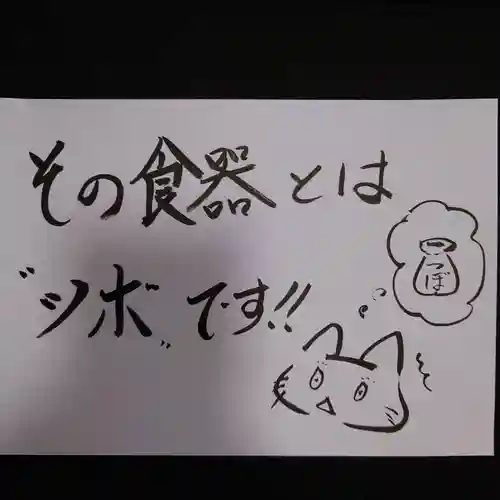 その食器とは
"ツボ"です!!
つぼ